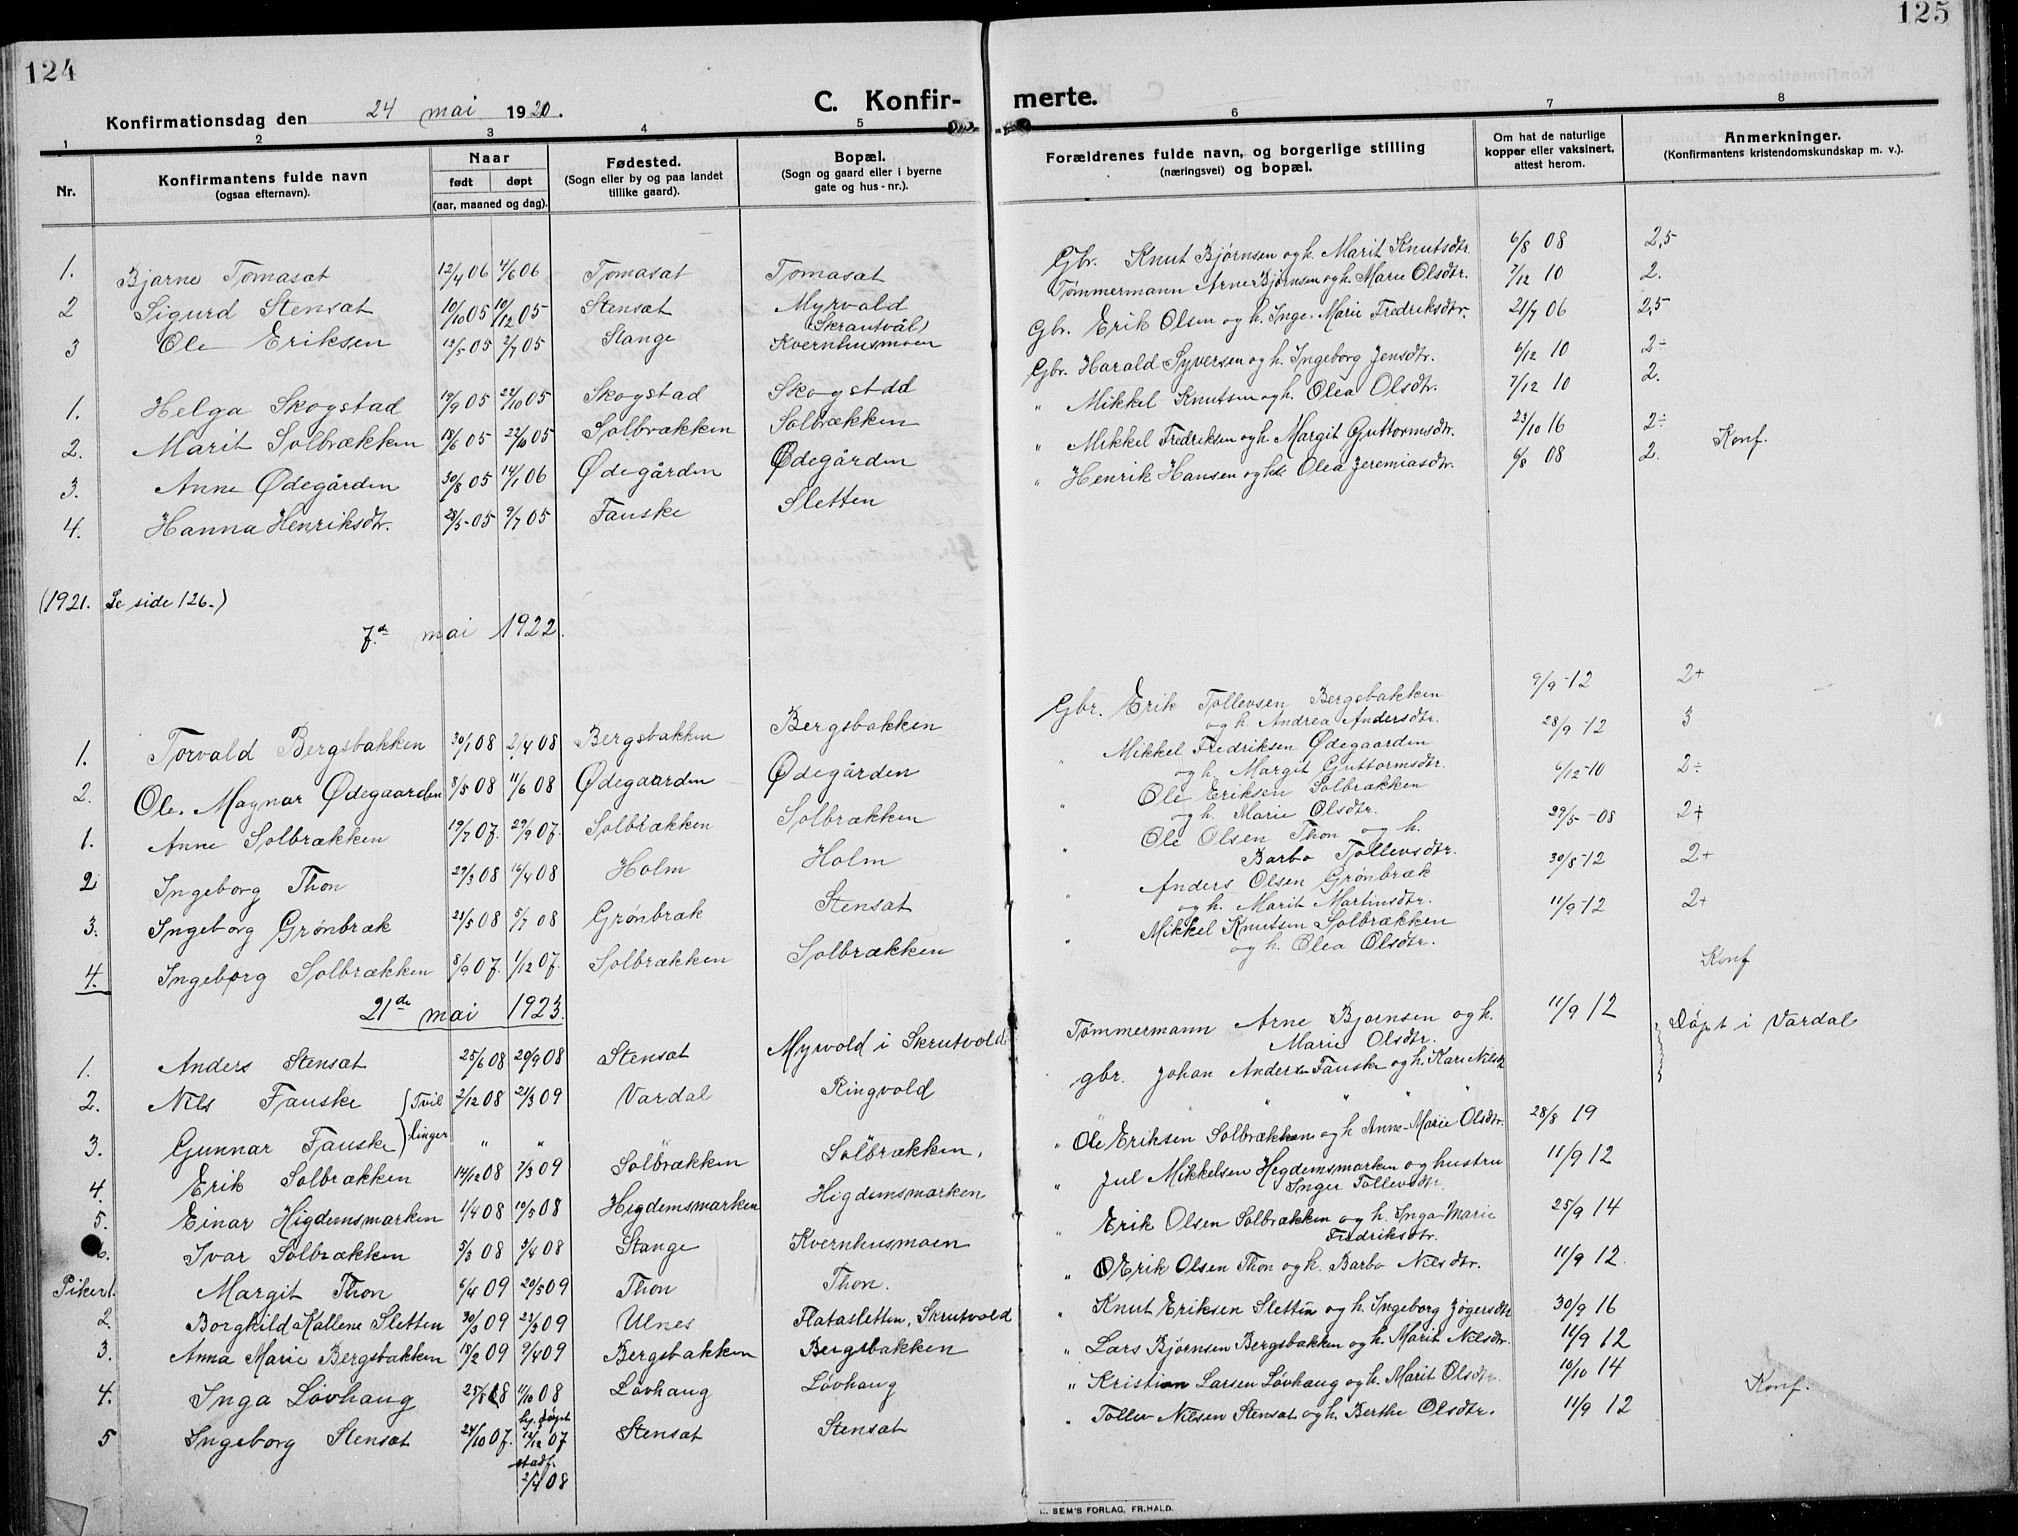 124
125
C. Konfir- merte.
Konfirmationsdag den 24 mai 1920.
1 2 3 4 5 6 7 8
Nr.
Konfirmantens fulde navn
(ogsaa efternavn).
Naar
født døpt
(aar, maaned og dag).
Fødested.
(Sogn eller by og paa landet
tillike gaard).
Bopæl.
(Sogn og gaard eller i byerne
gate og hus-nr.).
Forældrenes fulde navn, og borgerlige stilling
(næringsvei) og bopæl.
Om hat de naturlige
kopper eller vaksinert,
attest herom.
Anmerkninger.
(Konfirmantens kristendomskundskap m. v.).
1. Bjarne Tomasat 12/4 06 4/6 06 Tomasat Tomasat Gbr. Knut Bjørnsen og h. Marit Knutsdtr. 6/8 08 2,5
2 Sigurd Stensat 10/10 05 10/12 05 Stensat Myrvald (Skrautvål) Tømmermann Arne Bjørnsen og h. Marie Olsdtr. 7/12 10 2.
3 Ole Eriksen 13/5 05 2/7 05 Stange Kvernhusmoen Gbr. Erik Olsen og h. Inge. Marie Fredriksdtr. 21/7 06 2,5
1. Helga Skogstad 19/9 05 22/10 05 Skogstad Skogstad Gbr. Harald Syversen og h. Ingeborg Jensdtr. 6/12 10 2÷
2. Marit Solbrækken 18/6 05 22/10 05 Solbrækken Solbrækken " Mikkel Knutsen og h. Olea Olsdtr. 7/12 10 2.
3. Anne Ødegården 30/8 05 14/1 06 Ødegården Ødegården " Mikkel Fredriksen og h. Margit Guttormsdtr. 23/10 16 2÷ Konf.
4. Hanna Henriksdtr. 28/5 05 9/7 05 Fauske Sletten " Henrik Hansen og h. Olea Jeremiasdtr. 6/8 08 2.
(1921. Se side 126.)
7.de mai 1922.
1. Torvald Bergsbakken 30/1 08 2/4 08 Bergsbakken Bergsbakken Gbr. Erik Tollevsen Bergsbakken
og h. Andrea Andersdtr. 9/9-12 2+
2. Ole. Magnar Ødegaarden 8/5 08 11/6 08 Ødegaarden Ødegården " Mikkel Fredriksen Ødegaarden
og h. Margit Guttormsdtr. 28/9-12 3
1. Anne Solbrækken 19/7 07. 29/9 07. Solbrækken Solbrækken " Ole Eriksen Solbrækken
og h. Marie Olsdtr. 6/12-10 2÷
2 Ingeborg Thon 29/3 08 16/4 08 Holm Holm " Ole Olsen Thon og h.
Barbo Tollevsdtr. 29/5-08 2+
3. Ingeborg Grønbræk 23/5 08 5/7 08 Grønbræk Stensat " Anders Olsen Grønbræk
og h. Marit Martinsdtr. 30/8-12 2+
4. Ingeborg Solbrækken 8/9 07. 1/12 07. Solbrækken Solbrækken " Mikkel Knutsen Solbrækken
og h. Olea Olsdtr. 11/9-12 2+
21de mai 1923. Konf
1. Anders Stensat 25/6 08 20/9 08 Stensat Myrvold i Skrutvold Tømmermann Arne Bjørnsen og h.
Marie Olsdtr. 11/9 12
2. Nils Fauske (Tvil 2/12 08 21/3 09 Vardal Ringvold gbr. Johan Andersen Fauske og h. Kari Nilsdtr Døpt i Vardal
3. Gunnar Fauske linger " " " " " " "
4. Erik Solbrækken 14/12 08 7/3 09 Solbrækken Solbrækken, " Ole Eriksen Solbrækken og h Anne-Marie Olsdtr. 28/8 19
5. Einar Higdemsmarken 1/4 08 10/5 08 Higdemsmarken Higdemsmarken " Jul Mikkelsen Hegdemsmarken og hustru
Inger Tollevsdtr. 11/9 12
6. Ivar Solbrækken 3/3 08 5/4 08 Stange Kvernhusmoen " Erik Olsen Solbrækken og h. Inga-Marie
Fredriksdtr. 25/9 14
Piker 1. Margit Thon 6/4 09 20/5 09 Thon Thon. " Erik Olsen Thon og h. Barbo Nilsdtr. 11/9 12.
2. Borghild Kallene Sletten 30/3 09 23/5 09 Ulnes Flatasletten, Skrutvold " Knut Eriksen Sletten og h. Ingeborg Jøgersdtr 30/9 16
3. Anna Marie Bergsbakken 18/2 09 9/4 09 Bergsbakken Bergsbakken " Lars Bjørnsen Bergsbakken og h. Marit Nilsdtr. 11/9 12
4. Inga Løvhaug 25/8 08 11/10 08 Løvhaug Løvhaug " Kristian Larsen Løvhaug og h. Marit Olsdtr. 10/10 14
5 Ingeborg Stensat 24/10 07. hj. døpt
12/12 07
stadf.
2/4 08 Stensat Stensat " Tollev Nilsen Stensat og h. Berthe Olsdtr. 11/9 12 Konf.
SEM'S FORLAG, FR.HALD.